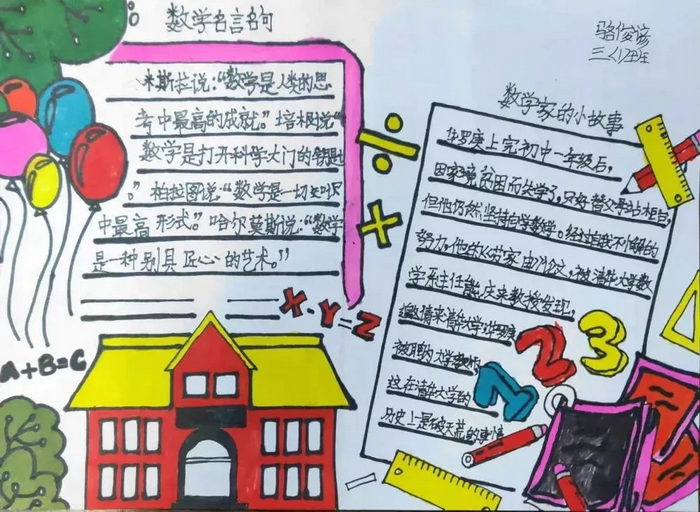 数学名言名句
米斯拉说:“数学是人类的思
考中最高的成就。”培根说“
数学是打开科学大门的钥匙
。”柏拉图说:“数学是一切知识
中最高形式。”哈尔莫斯说:“数学
是一种别具匠心的艺术。”
X·Y=Z
A+B=C
骆俊谚
数学家的小故事
华罗庚上完初中一年级后,
因家境贫困而失学了,只好替父母站柜台,
但他仍然坚持自学数学。经过自我不懈的
努力,他的
论文,被清华大学数
学系主任熊庆来教授发现,
邀请来清华大学
被聘为大学教师
这在清华大学的
历史上是破天荒的事情
1 2 3